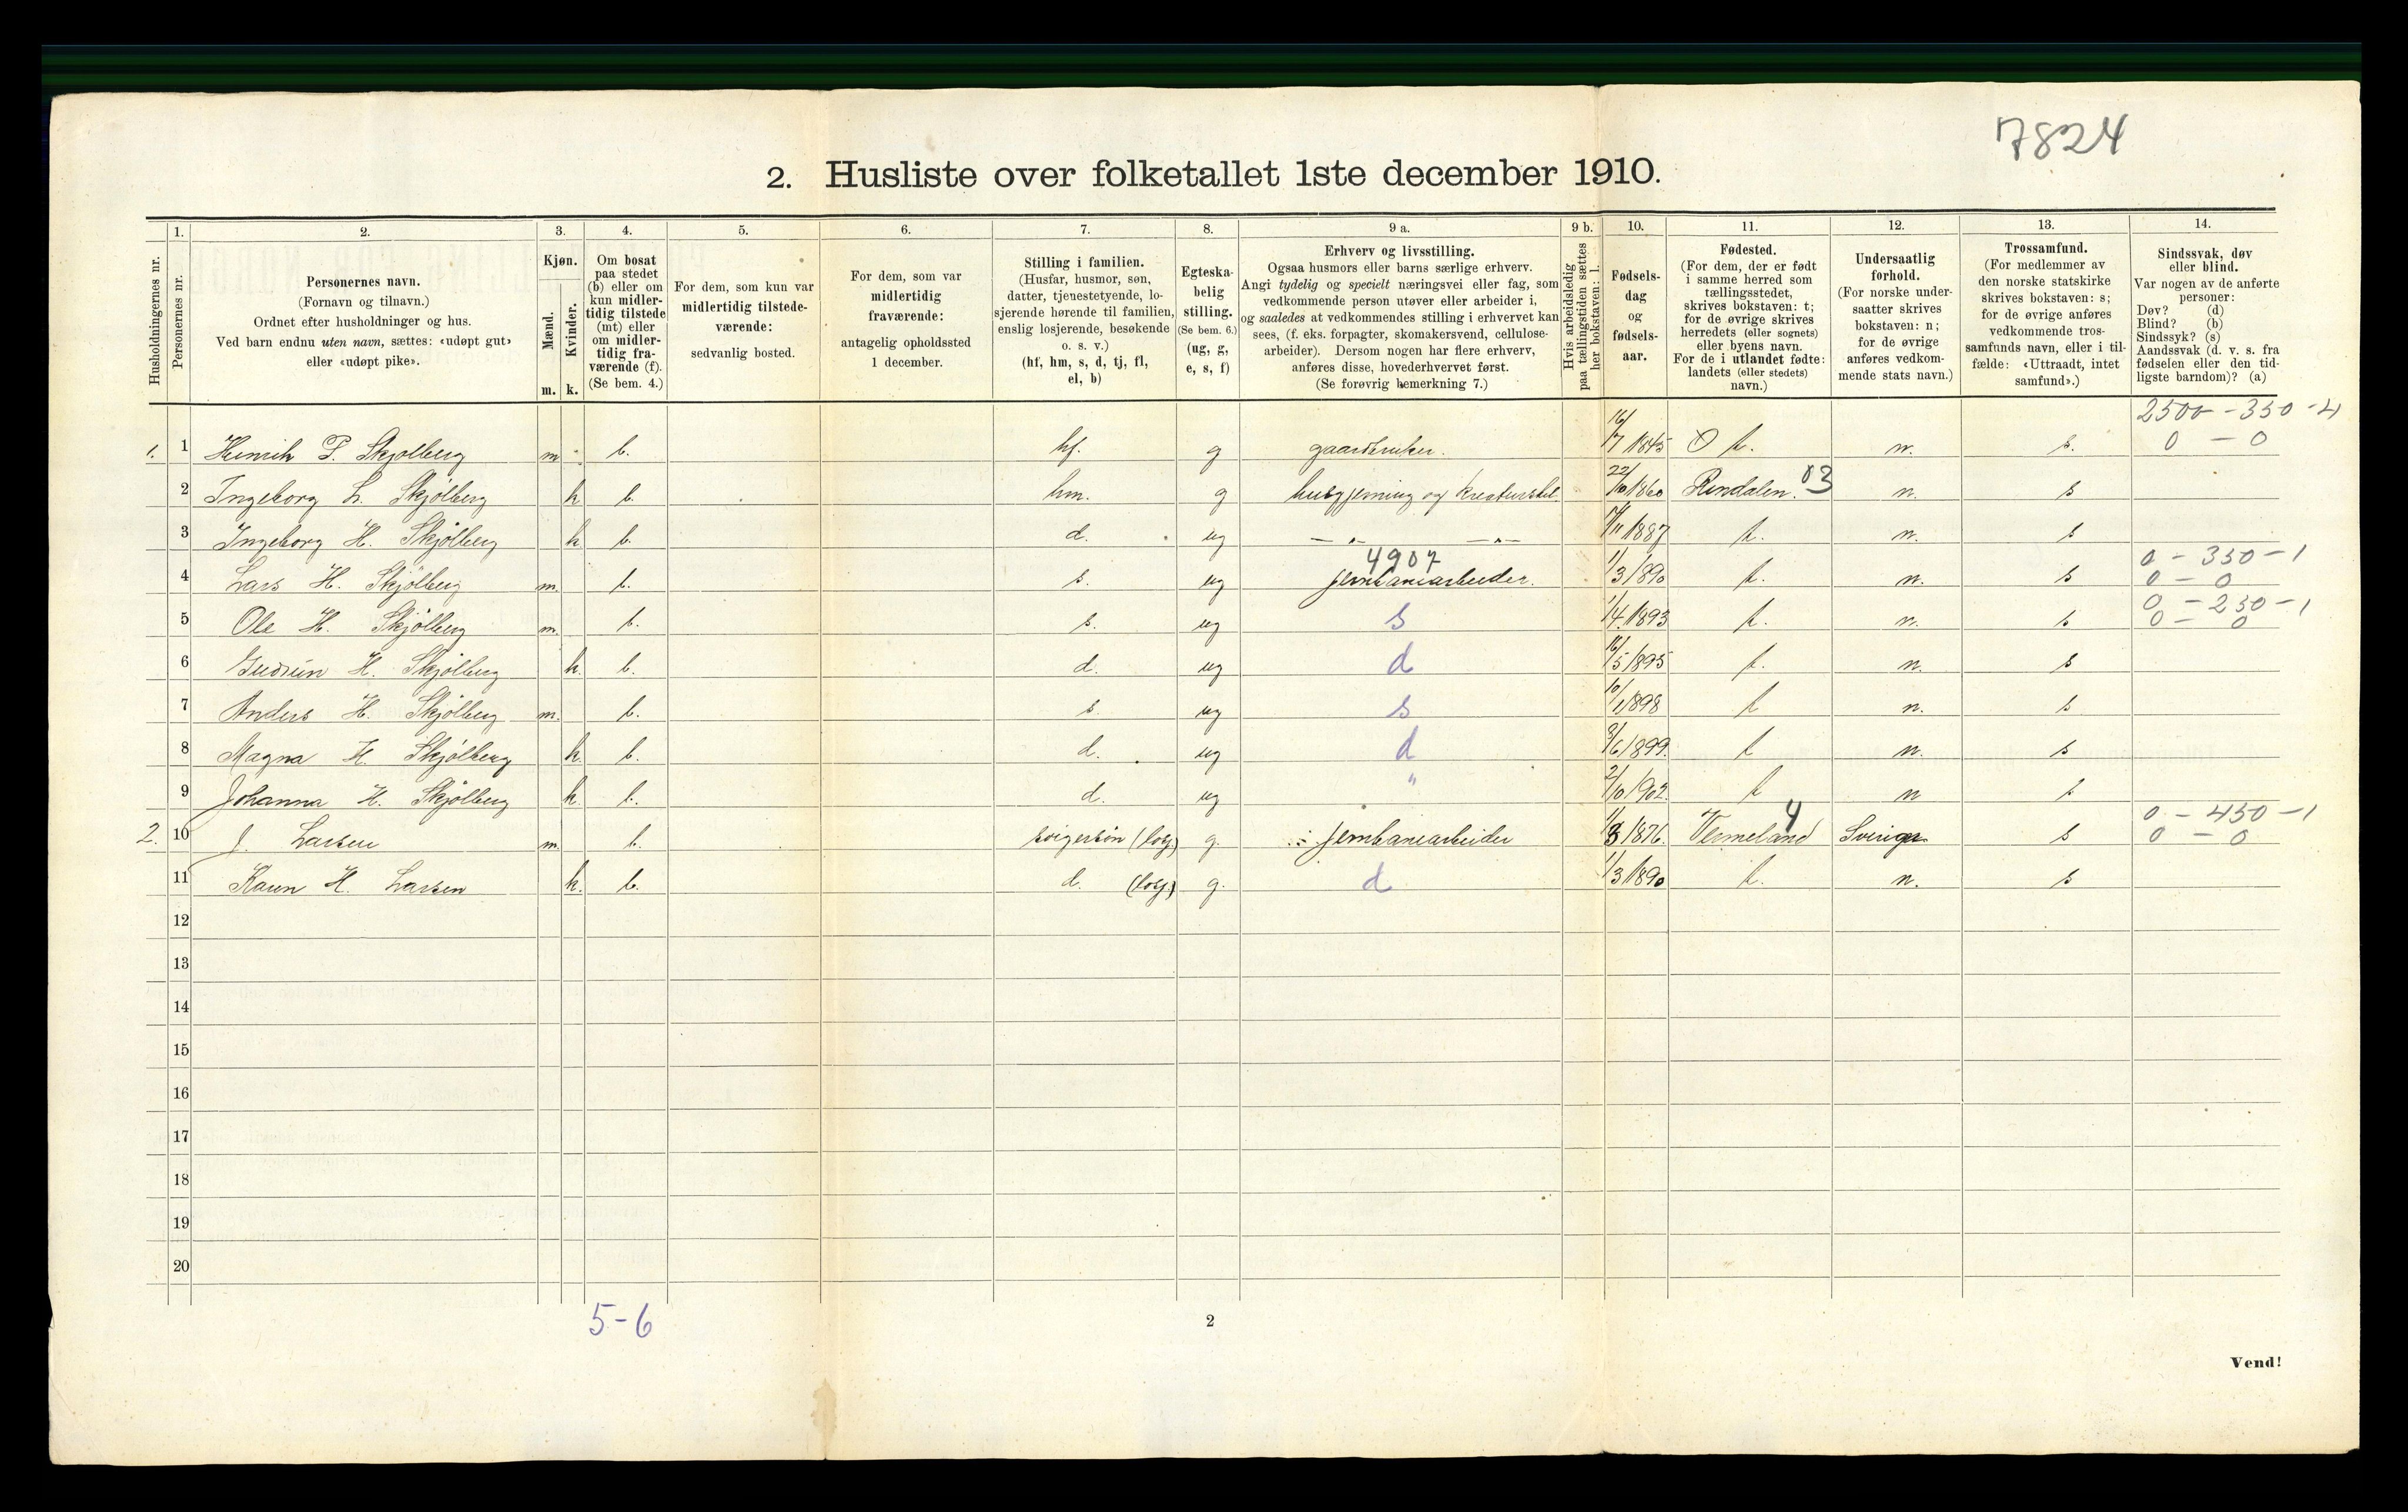 7824
2. Husliste over folketallet 1ste december 1910.
Husholdningernes nr.
1.
Personernes nr.
2.
Personernes navn.
(Fornavn og tilnavn.)
Ordnet efter husholdninger og hus.
Ved barn endnu uten navn, sættes: «udøpt gut»
eller «udøpt pike».
3.
Kjøn.
Mænd.
m.
Kvinder.
k.
4.
Om bosat
paa stedet
(b) eller om
kun midler-
tidig tilstede
(mt) eller
om midler-
tidig fra-
værende (f).
(Se bem. 4.)
5.
For dem, som kun var
midlertidig tilstede-
værende:
sedvanlig bosted.
6.
For dem, som var
midlertidig
fraværende:
antagelig opholdssted
1 december.
7.
Stilling i familien.
(Husfar, husmor, søn,
datter, tjenestetyende, lo-
sjerende hørende til familien,
enslig losjerende, besøkende
o. s. v.)
(hf, hm, s, d, tj, fl,
el, b)
8.
Egteska-
belig
stilling.
(Se bem. 6.)
(ug, g,
e, s, f)
9 a.
Erhverv og livsstilling.
Ogsaa husmors eller barns særlige erhverv.
Angi tydelig og specielt næringsvei eller fag, som
vedkommende person utøver eller arbeider i,
og saaledes at vedkommendes stilling i erhvervet kan
sees, (f. eks. forpagter, skomakersvend, cellulose-
arbeider). Dersom nogen har flere erhverv,
anføres disse, hovederhvervet først.
(Se forøvrig bemerkning 7.)
9 b.
Hvis arbeidsledig
paa tællingstiden sættes
her bokstaven: l.
10.
Fødsels-
dag
og
fødsels-
aar.
11.
Fødested.
(For dem, der er født
i samme herred som
tællingsstedet,
skrives bokstaven: t;
for de øvrige skrives
herredets (eller sognets)
eller byens navn.
For de i utlandet fødte:
landets (eller stedets)
navn.)
12.
Undersaatlig
forhold.
(For norske under-
saatter skrives
bokstaven: n;
for de øvrige
anføres vedkom-
mende stats navn.)
13.
Trossamfund.
(For medlemmer av
den norske statskirke
skrives bokstaven: s;
for de øvrige anføres
vedkommende tros-
samfunds navn, eller i til-
fælde: «Uttraadt, intet
samfund».)
14.
Sindssvak, døv
eller blind.
Var nogen av de anførte
personer:
Døv? (d)
Blind? (b)
Sindssyk? (s)
Aandssvak (d. v. s. fra
fødselen eller den tid-
ligste barndom)? (a)
2500 - 350 - 4
1. 1 Henrik P. Skjølberg m b. hf. g gaardbruker. 16/7 1845 t. n. s. 0 - 0
2 Ingeborg L. Skjølberg k b. hm. g husgjerning og kreaturstel. 22/10 1860 Rendalen. 03 n. s
3 Ingeborg H. Skjølberg k b. d. ug —„— —„— /11 1887 t. n. s
4907 0 - 350 - 1
4 Lars H. Skjølberg m. b. s. ug jernbanearbeider. 1/3 1890 t. n. s 0 - 0
0 - 250 - 1
5 Ole H. Skjølberg m. b. s. ug s 1/4 1893 t. n. s 0 - 0
6 Gudrun H. Skjølberg k. b. d. ug d 16/5 1895 t. n. s
7 Anders H. Skjølberg m. b. s. ug s 10/1 1898 t n. s
8 Magna H. Skjølberg k. b. d. ug d 9/6 1899. t n. s
9 Johanna H. Skjølberg k. b. d. ug " 2/10 1902 t n s
4 0 - 450 - 1
2. 10 J. Larsen m. b. svigersøn (losj.) g. jernbanearbeider 1/3 1876. Vermeland Sverige s 0 - 0
11 Karen H. Larsen k. b. d. (losj.) g. d 1/3 1890 t. n. s
12
13
14
15
16
17
18
19
20
5-6
2
Vend!